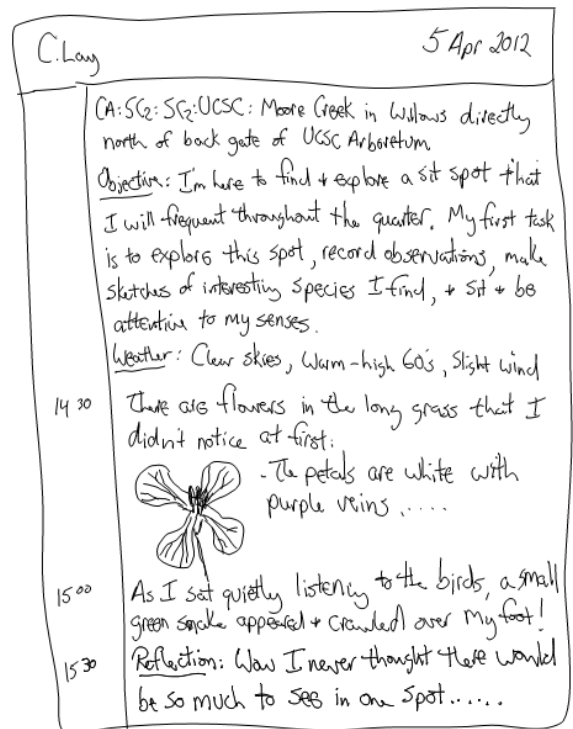 C. Lay
5 Apr 2012
CA: SCz: SCz: UCSC: Moore Creek in Willows directly
north of back gate of UCSC Arboretum.
Objective: I'm here to find + explore a sit spot that
I will frequent throughout the quarter. My first task
is to explore this spot, record observations, make
sketches of interesting species I find, + sit + be
attentive to my senses.
Weather: Clear skies, Warm-high 60's, Slight wind
14 30 There are flowers in the long grass that I
didn't notice at first:
- The petals are white with
purple veins .....
15 00 As I sat quietly listening to the birds, a small
green snake appeared + crawled over my foot!
15 30 Reflection: Wow I never thought there would
be so much to see in one spot......